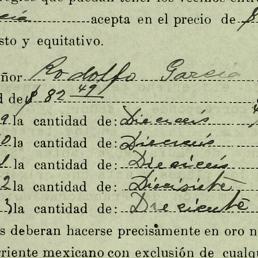 acepta en el precio de
sto y equitativo.
ñor Rodolfo Garcia
d de $ 82 49
9 la cantidad de: Dieciseis
0 la cantidad de: Dieciseis
1 la cantidad de: Dieciseis
2 la cantidad de: Diecisiete
3 la cantidad de: Diecisiete
s deberan hacerse precisamente en oro n
rriente mexicano con exclusión de cualqu